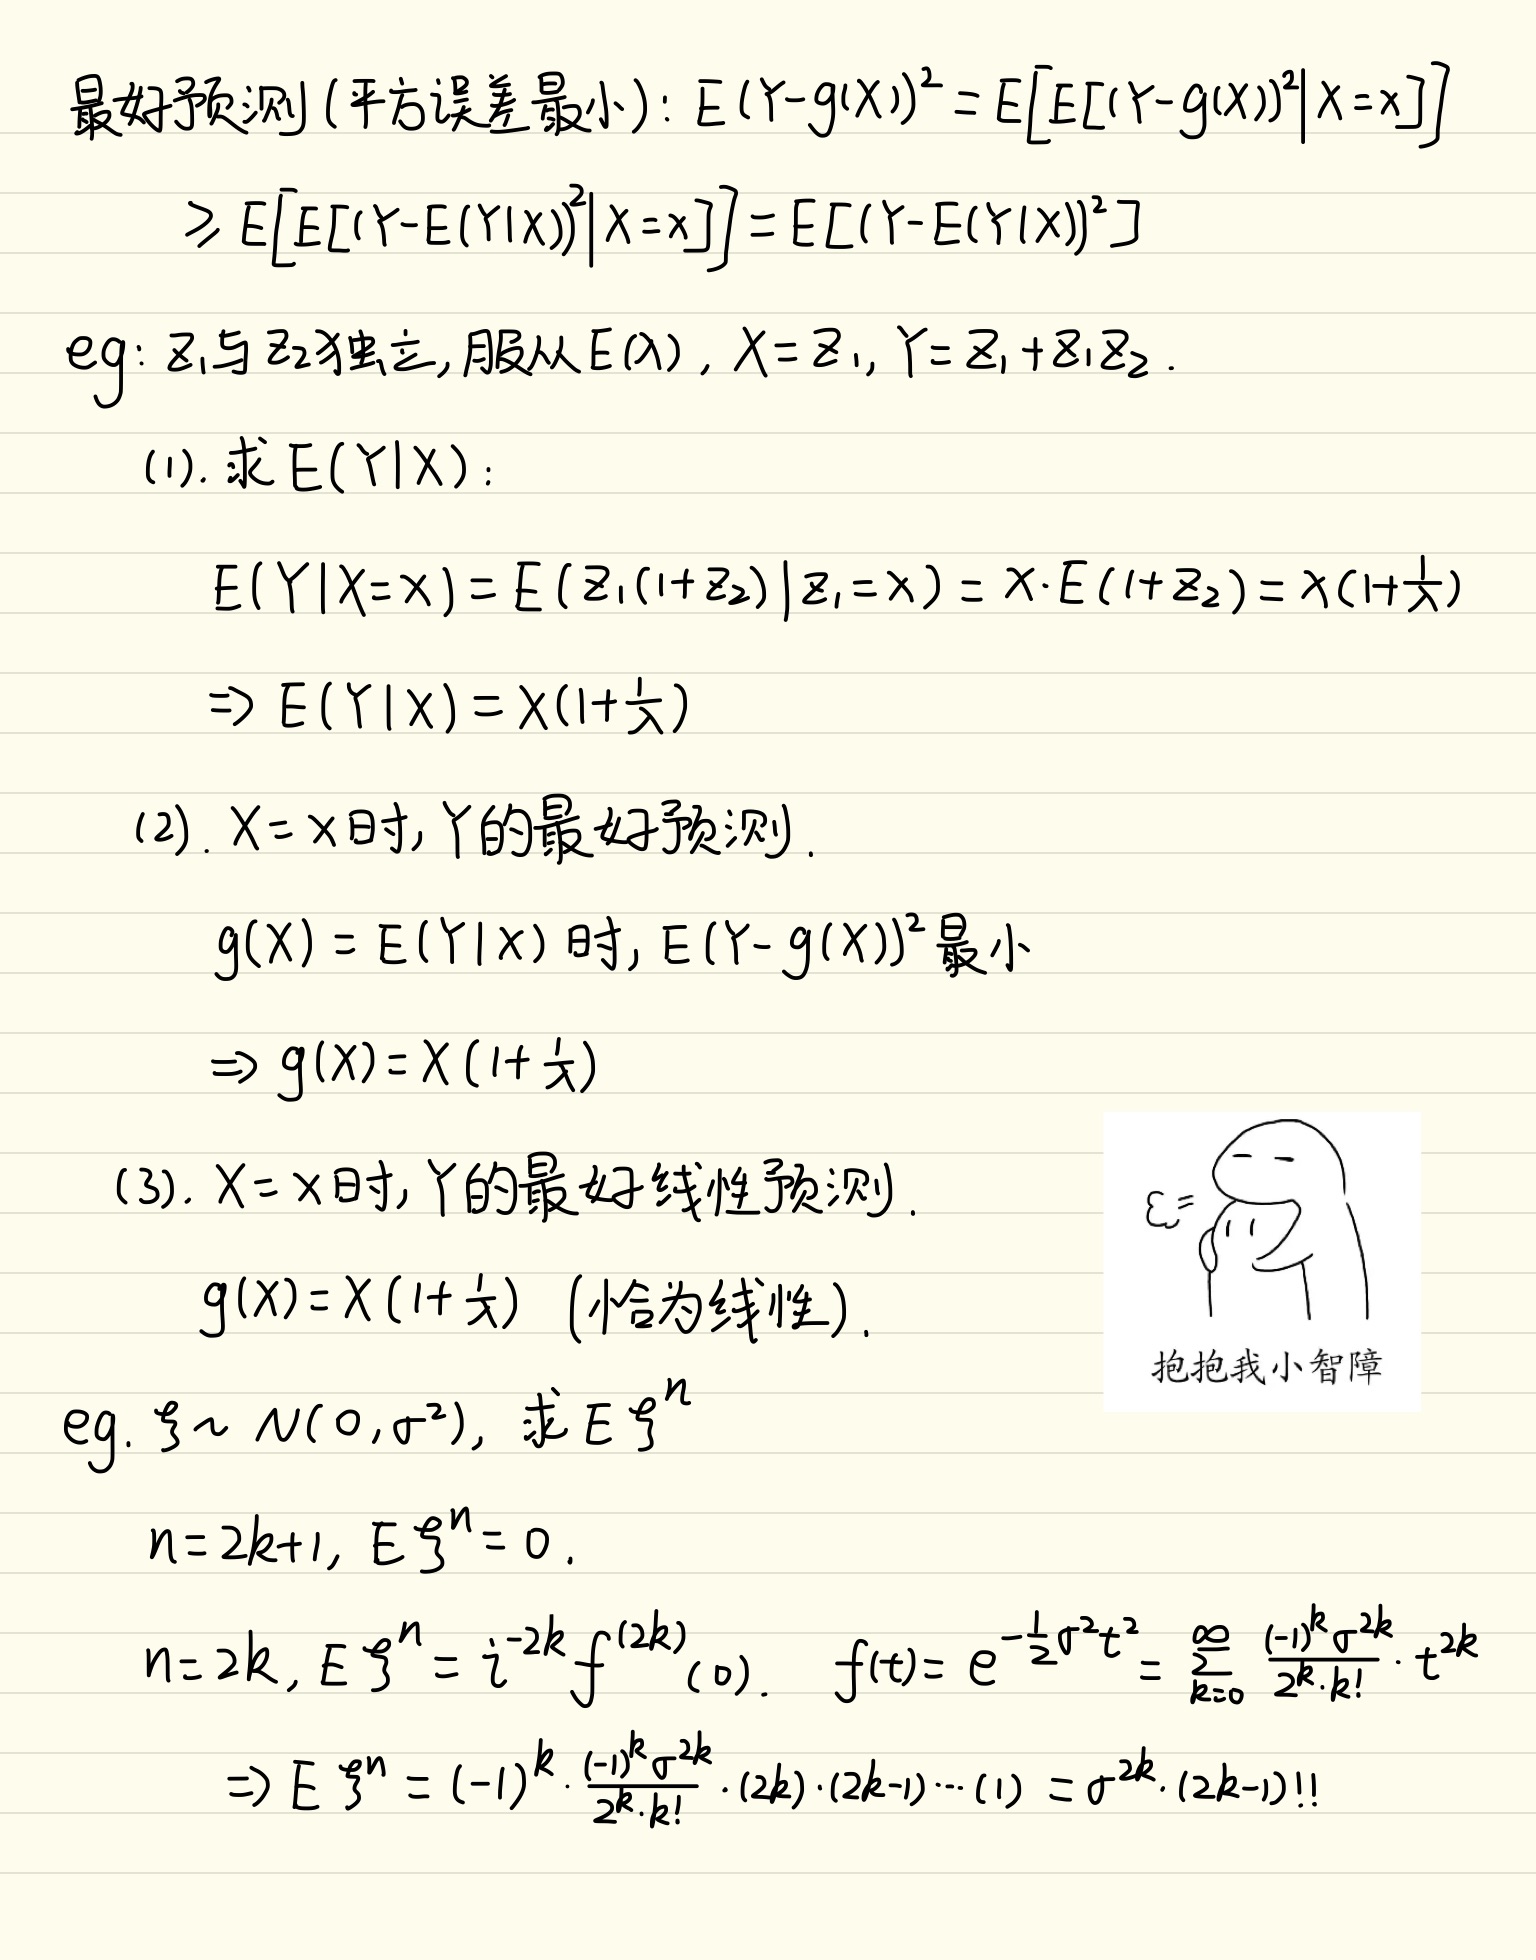 最好预测(平方误差最小): E(Y-g(X))² = E[E[(Y-g(X))²|X=x]]
≥ E[E[(Y-E(Y|X))²|X=x]] = E[(Y-E(Y|X))²]
eg: Z₁与Z₂独立,服从E(λ), X=Z₁, Y=Z₁+Z₁Z₂.
(1). 求E(Y|X):
E(Y|X=x) = E(Z₁(1+Z₂)|Z₁=x) = x·E(1+Z₂) = x(1+1/λ)
⇒ E(Y|X) = X(1+1/λ)
(2). X=x时, Y的最好预测.
g(X) = E(Y|X) 时, E(Y-g(X))² 最小
⇒ g(X) = X(1+1/λ)
(3). X=x时, Y的最好线性预测.
g(X) = X(1+1/λ) (恰为线性).
抱抱我小智障
eg. ξ~N(0,σ²), 求Eξⁿ
n=2k+1, Eξⁿ=0.
n=2k, Eξⁿ = i^{-2k} f^{(2k)}(0). f(t) = e^{-\frac{1}{2}σ²t²} = \sum_{k=0}^{∞} \frac{(-1)^k σ^{2k}}{2^k·k!}·t^{2k}
⇒ Eξⁿ = (-1)^k·\frac{(-1)^k σ^{2k}}{2^k·k!}·(2k)·(2k-1)···(1) = σ^{2k}·(2k-1)!!